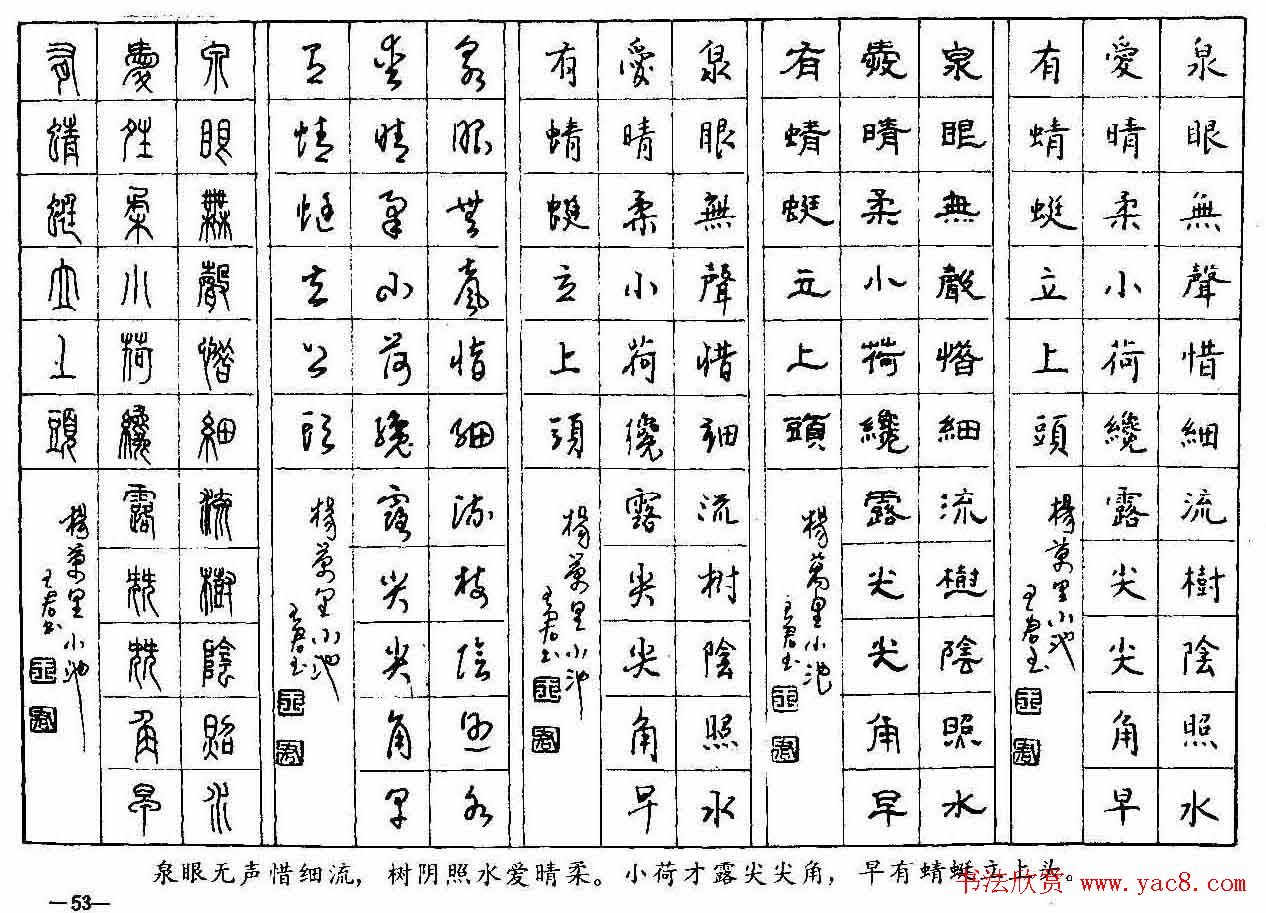 泉眼無聲惜細流樹陰照水
愛晴柔小荷纔露尖尖角早
有蜻蜓立上頭
楊萬里小池
王君書
泉眼無聲惜細流樹陰照水
愛晴柔小荷纔露尖尖角早
有蜻蜓立上頭
楊萬里小池
王君書
泉眼無聲惜細流树陰照水
愛晴柔小荷纔露尖尖角早
有蜻蜓立上頭
楊萬里小池
王君書
泉眼無聲惜細流枝陰照水
愛晴柔小荷纔露尖尖角早
有蜻蜓立上頭
楊萬里小池
王君書
泉眼無聲惜細流樹陰照水
愛姓柔小荷纔露尖尖角早
有蜻蜓立上頭
楊萬里小池
王君書
泉眼无声惜细流，树阴照水爱晴柔。小荷才露尖尖角，早有蜻蜓立上头。
书法欣赏 www.yac8.com
—53—